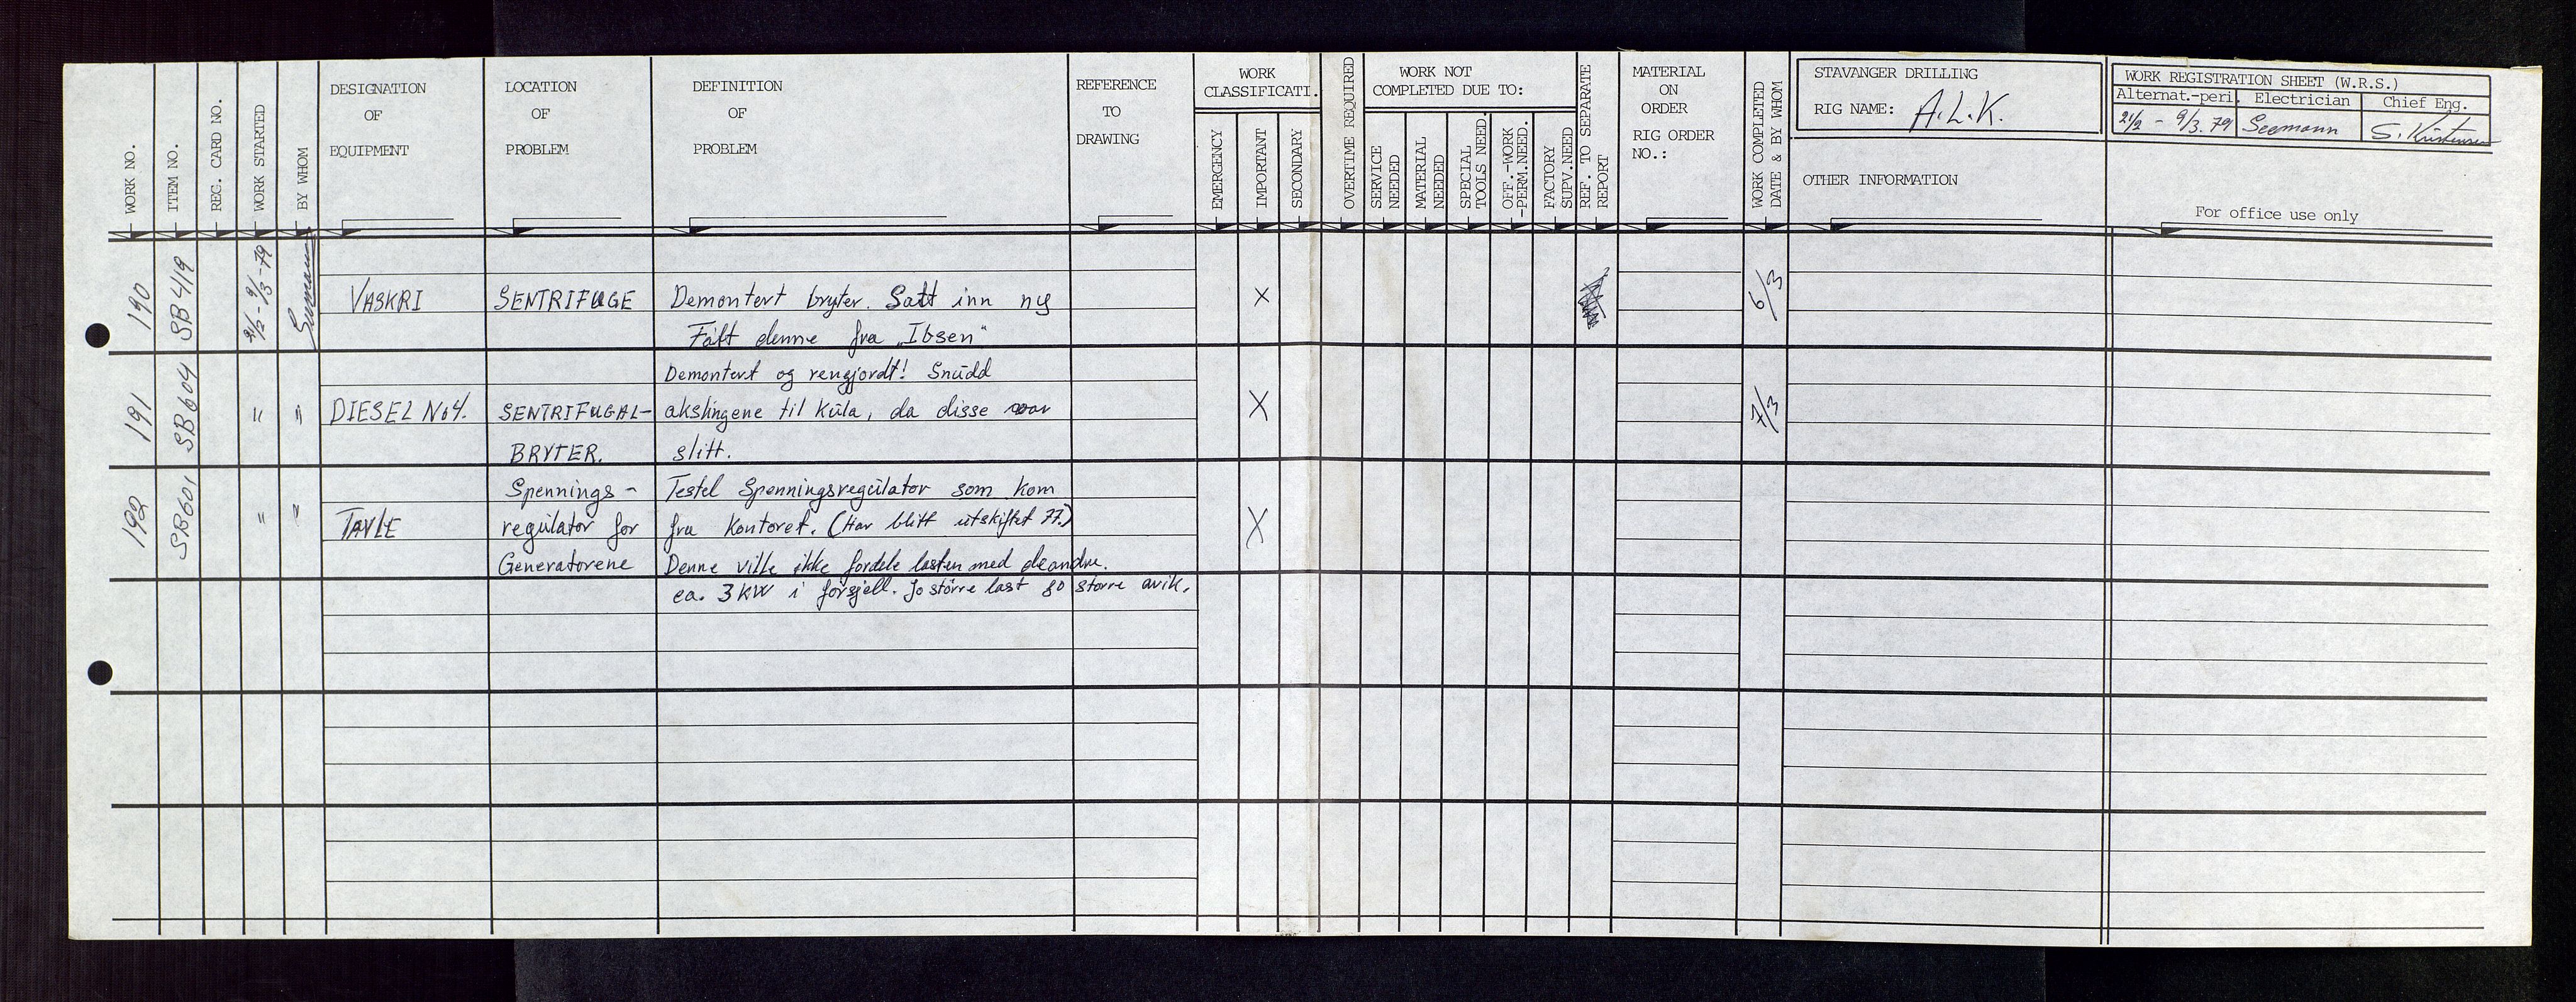 STAVANGER DRILLING
RIG NAME: A.L.K.
WORK REGISTRATION SHEET (W.R.S.)
Alternat.-peri. Electrician Chief Eng.
21/2 - 9/3. 79 Seemann S. Kristensen
WORK NO.
ITEM NO.
REG. CARD NO.
WORK STARTED
BY WHOM
DESIGNATION
OF
EQUIPMENT
LOCATION
OF
PROBLEM
DEFINITION
OF
PROBLEM
REFERENCE
TO
DRAWING
WORK
CLASSIFICATI.
EMERGENCY
IMPORTANT
SECONDARY
OVERTIME REQUIRED
WORK NOT
COMPLETED DUE TO:
SERVICE
NEEDED
MATERIAL
NEEDED
SPECIAL
TOOLS NEED.
OFF.-WORK
-PERM.NEED.
FACTORY
SUPV.NEED
REF. TO SEPARATE
REPORT
MATERIAL
ON
ORDER
RIG ORDER
NO.:
WORK COMPLETED
DATE & BY WHOM
OTHER INFORMATION
For office use only
190 SB419 21/2-9/3-79 Seemann
VASKRI SENTRIFUGE Demontert bryter. Satt inn ny X 6/3
Fått denne fra "Ibsen"
Demontert og rengjordt! Snudd
191 SB604 = = DIESEL No4. SENTRIFUGAL- akslingene til kula, da disse var X 7/3
BRYTER. slitt.
Spennings- Testet Spenningsregulator som kom
192 SB601 = = TAVLE regulator for fra kontoret. (Har blitt utskiftet 77.) X
Generatorene Denne ville ikke fordele lasten med deandre.
ca. 3KW i forsjell. Jo större last so större avik.